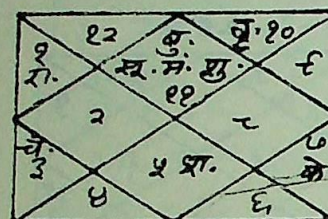 १२ बु. बृ. १०
१ रा. सू. मं. शु. ९
११
२ ८
चं. ३ ५ श. ७ के
४ ६